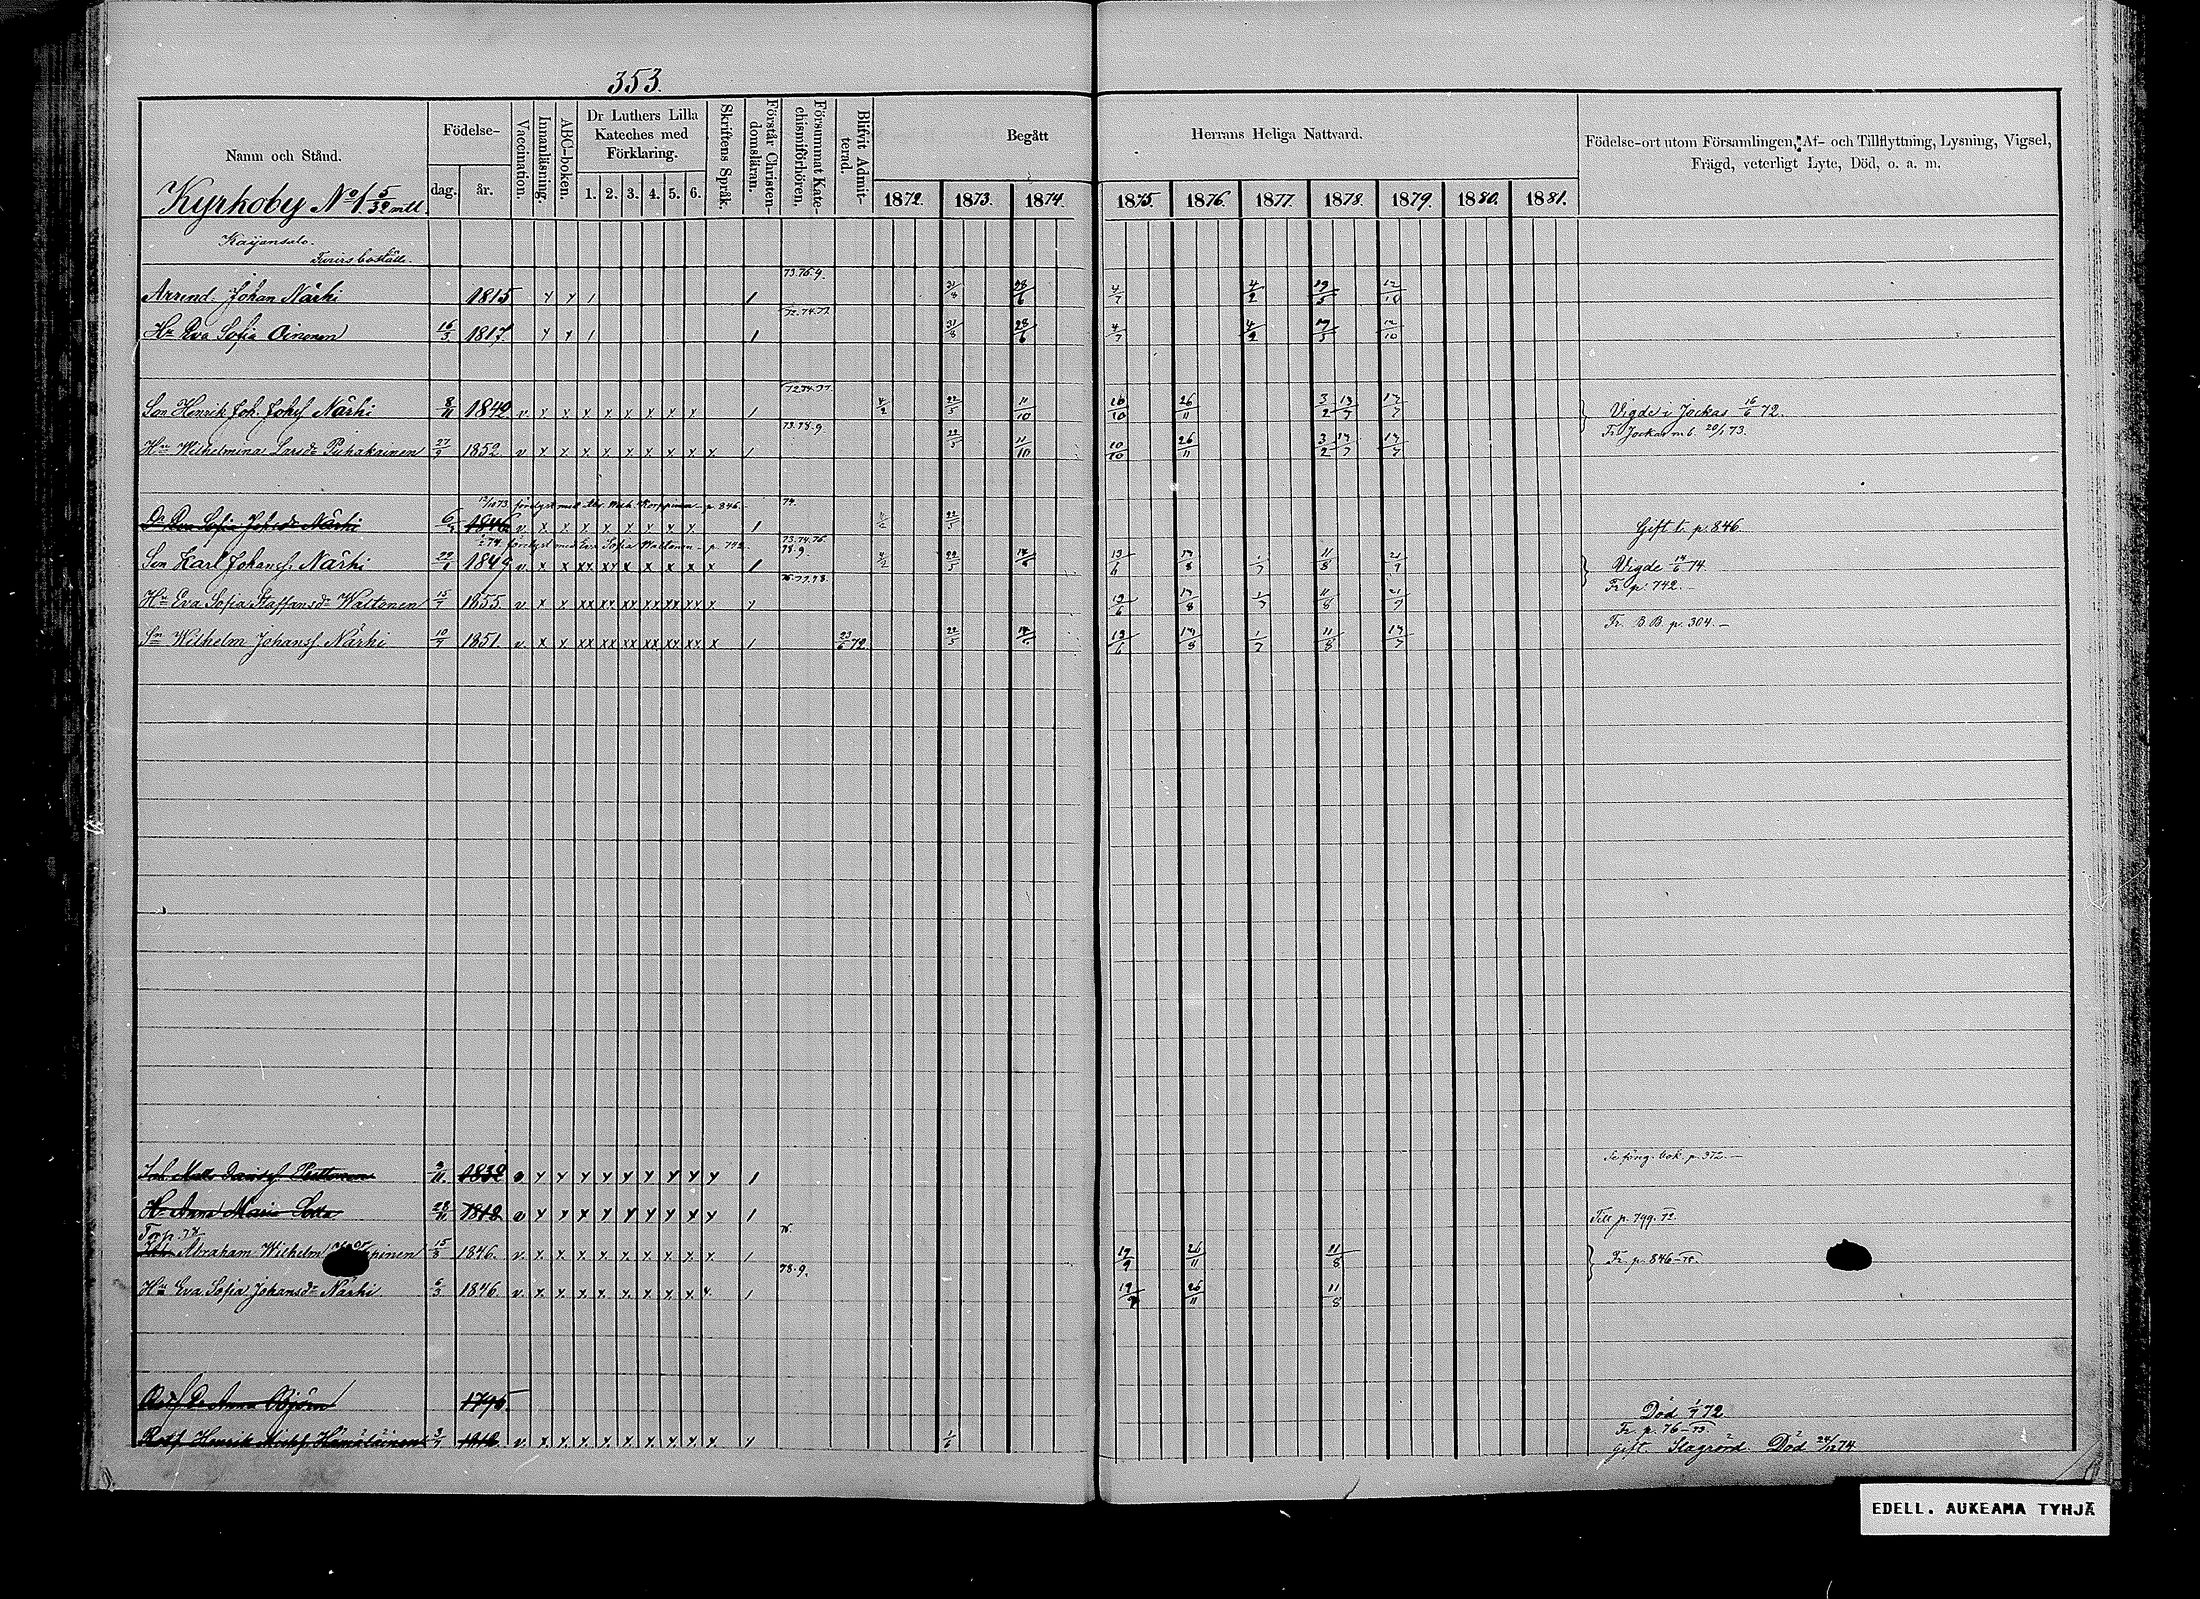 353.
Namn och Stånd.
Födelse-
dag. år.
Vaccination.
Innanläsning.
ABC-boken.
Dr Luthers Lilla Kateches med Förklaring.
1. 2. 3. 4. 5. 6.
Skriftens Språk.
Förstår Christendomsläran.
Försummat Katechismiförhören.
Blifvit Admitterad.
Begått Herrans Heliga Nattvard.
1872. 1873. 1874. 1875. 1876. 1877. 1878. 1879. 1880. 1881.
Födelse-ort utom Församlingen, Af- och Tillflyttning, Lysning, Vigsel,
Frägd, veterligt Lyte, Död, o. a. m.
Kyrkoby No 1 5/32 mtl.
Kaijansalo.
boställe.
73.75.9.
Arrend. Johan Närhi 1815 y y 1 1 31/8 28/6 4/7 4/2 19/5 12/10
72.74.77.
Hu Eva Sofia Oinonen 16/3 1817. y y 1 1 31/8 28/6 4/7 4/2 19/5 12/10
72.74.77.
Son Henrik Joh. Johs Närhi 8/11 1842 v x x x x x x x x 1 4/2 22/5 11/10 10/10 26/11 3/2 13/7 13/7 Vigde i Jockas 16/6 72.
73.78.9. Fr. Jockas mb. 20/1 73.
Hu Wilhelmina Larsdr Puhakainen 27/9 1852. v x x x x x x x x x 1 22/5 11/10 10/10 26/11 3/2 13/7 13/7
12/10 73 förelyst med Abr. Wilh. Korppinen - p. 846. - 74.
Dr Eva Sofia Johsdr Närhi 6/3 1846. v x x x x x x x x 1 4/2 22/5 Gift t. p. 846.
74. förelyst med Eva Sofia Waltonen - p. 742. 73.74.75.
78.9.
Son Karl Johans. Närhi 22/1 1849 v x x xx xy x x x x x 1 4/2 22/5 14/6 13/6 19/8 1/7 11/8 21/9 Vigde 14/6 74.
76.77.78. Fr. p. 742. -
Hu Eva Sofia Staffansdr Waltonen 15/7 1855. v x x xx xx xx xx xx xx x 1 13/6 19/8 1/7 11/8 21/7
Fr. B.B. p. 304. -
Sn Wilhelm Johanss. Närhi 10/7 1851. v x x xx xx xx xx xx xx x 1 23/6 72. 22/5 14/6 13/6 19/8 1/7 11/8 13/7
Se fång. bok. p. 372. -
Inh. Matts Davidss. 3/11. 1832 v y y y y y y y y y 1
Hu Anna Maria 28/11 1818 v y y x x y y y y y 1 Till p. 799. 72.
Torp. 78 76.
Inh. Abraham Wilhelm Korppinen 15/8 1846. v x x x x x x x x x 1 19/9 26/11 11/8 Fr. p. 846 - 75.
78.9.
Hu Eva Sofia Johansdr Närhi 6/3 1846. v x x x x x x x x x. 1 19/9 26/11 11/8
Anna Björn 1795. Död 1/7 72
Fr. p. 76 - 73.
Henrik Hämäläinen 3/7 1818. v x x x x x x x x x y 1/6 Gift. Död 24/12 74
EDELL. AUKEAMA TYHJÄ